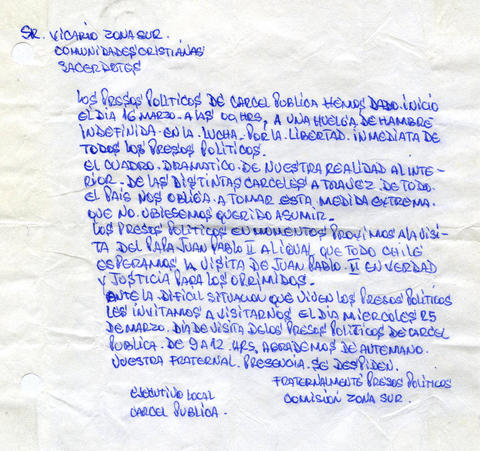 SR. VICARIO ZONA SUR.
COMUNIDADES CRISTIANAS
SACERDOTES
LOS PRESOS POLITICOS DE CARCEL PUBLICA HEMOS DADO INICIO
EL DIA 16 MARZO - A LAS 00 HRS, A UNA HUELGA DE HAMBRE
INDEFINIDA - EN LA LUCHA - POR LA LIBERTAD INMEDIATA DE
TODOS LOS PRESOS POLITICOS.
EL CUADRO DRAMATICO DE NUESTRA REALIDAD AL INTE-
RIOR - DE LAS DISTINTAS CARCELES A TRAVEZ DE TODO
EL PAIS NOS OBLIGA A TOMAR ESTA MEDIDA EXTREMA
QUE NO UBIESEMOS QUERIDO ASUMIR.
LOS PRESOS POLITICOS EN MOMENTOS PROXIMOS A LA VISI-
TA DEL PAPA JUAN PABLO II AL IGUAL QUE TODO CHILE
ESPERAMOS LA VISITA DE JUAN PABLO II EN VERDAD
Y JUSTICIA PARA LOS OPRIMIDOS.
ANTE LA DIFICIL SITUACION QUE VIVEN LOS PRESOS POLITICOS
LES INVITAMOS A VISITARNOS EL DIA MIERCOLES 25
DE MARZO. DIA DE VISITA DE LOS PRESOS POLITICOS DE CARCEL
PUBLICA. DE 9 A 12 HRS, AGRADEMOS DE ANTEMANO
VUESTRA FRATERNAL PRESENCIA. SE DESPIDEN.
FRATERNALMENTE PRESOS POLITICOS
COMISION ZONA SUR.
EJECUTIVO LOCAL
CARCEL PUBLICA.